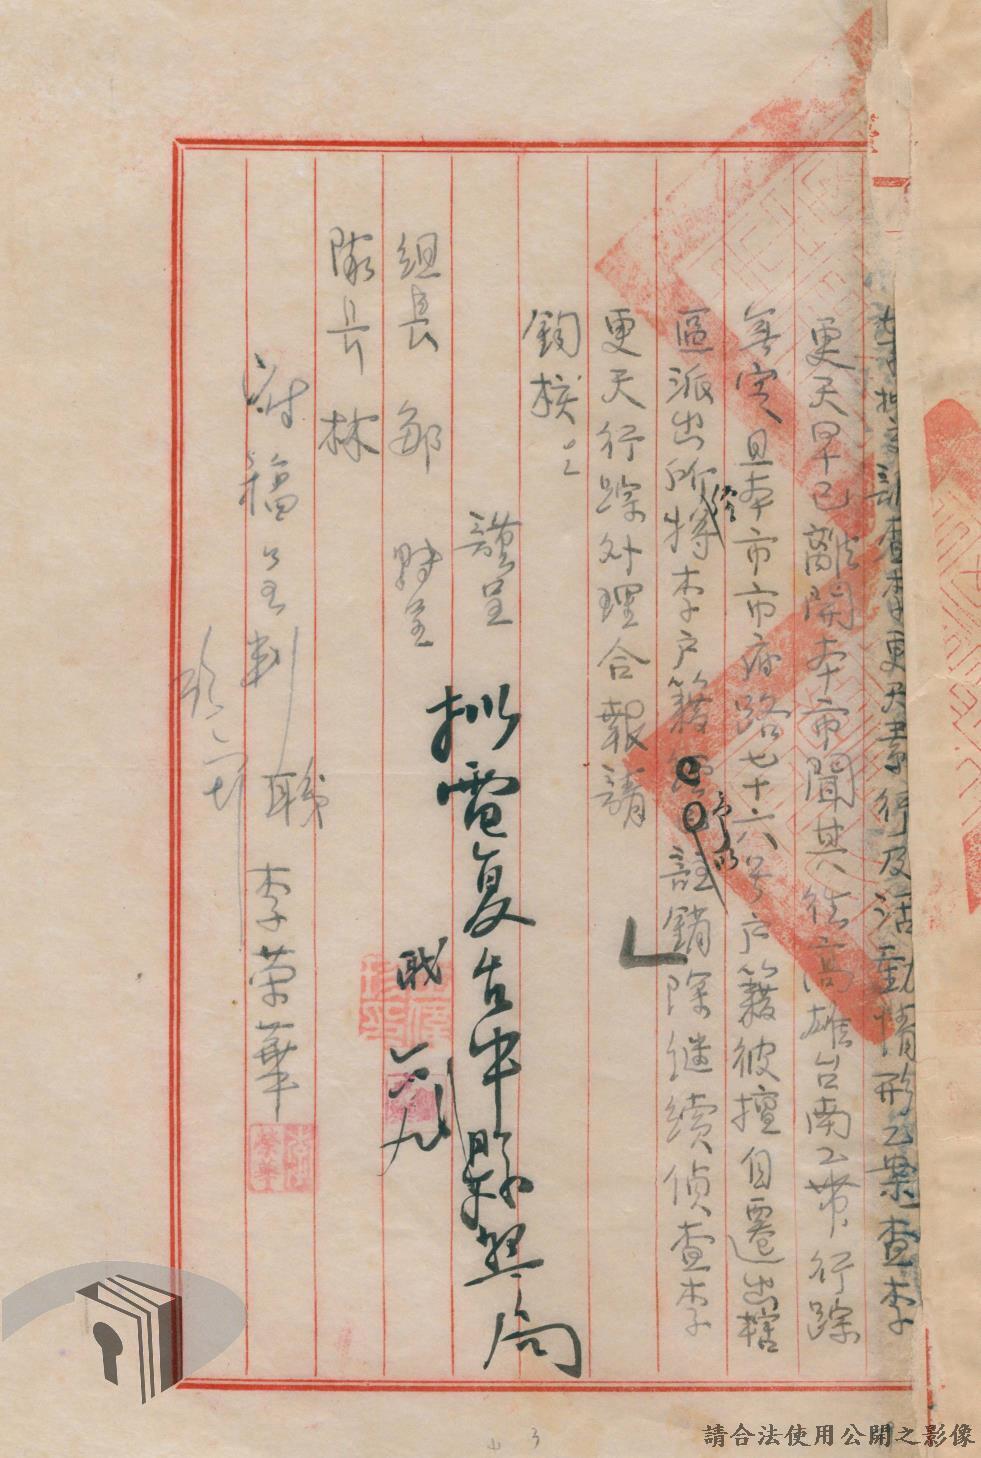 查李更天素行及活動情形乙案查李
更天早已離開本市聞其往高雄台南乙帶行踪
無定且本市市府路七十六号户籍彼擅自遷出轄
區派出所將李户籍註銷除継续偵查李
更天行踪外理合報請
鈞核
謹呈
組長 鄒 轉呈
隊長 林
職 李荣華
拟電复台中縣警局
職
請合法使用公開之影像